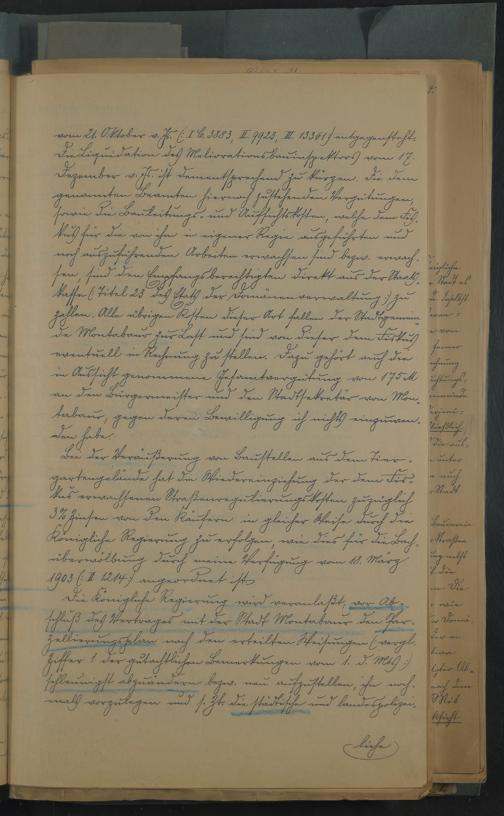 vom 21. Oktober v. Js. (: I C. 3883, II. 9923, III 13361) entgegensteht.
Die Liquidation des Meliorationsbauinspektors vom 17.
Dezember v. Js. ist dementsprechend zu kürzen. Die dem
genannten Beamten hiernach zustehenden Vergütungen,
sowie die Bauleitungs- und Aufsichtskosten, welche dem Fis-
kus für die von ihm in eigener Regie ausgeführten und
noch auszuführenden Arbeiten erwachsen sind bezw. erwach-
sen, sind den Empfangsberechtigten direkt aus der Staats-
kasse (Titel 23 des Etats der Domänenverwaltung:) zu
zahlen. Alle übrigen Kosten dieser Art fallen der Stadtgemein-
de Montabaur zur Last und sind von dieser dem Fiskus
eventuell in Rechnung zu stellen. Dazu gehört auch die
in Aussicht genommene Gesamtvergütung von 175 M
an den Bürgermeister und den Stadtsekretär von Mon-
tabaur, gegen deren Bewilligung ich nichts einzuwen-
den habe.
Bei der Veräußerung von Baustellen aus dem Tier-
gartengelände hat die Wiedereinziehung der dem Fis-
kus erwachsenen Straßenregulierungskosten zuzüglich
3% Zinsen von den Käufern in gleicher Weise durch die
Königliche Regierung zu erfolgen, wie dies für die Bach-
überwölbung durch meine Verfügung vom 18. März
1903 (: II 1214:) angeordnet ist.
Die Königliche Regierung wird veranlaßt, vor Ab-
schluß des Vertrages mit der Stadt Montabaur den Par-
zellierungsplan nach den erteilten Weisungen (vergl.
Ziffer 1 der gutachtlichen Bemerkungen vom 1. d. Mts:)
schleunigst abzuändern bezw. neu aufzustellen, ihn noch-
mals vorzulegen und s. Zt. die städtische und landespolizei-
liche